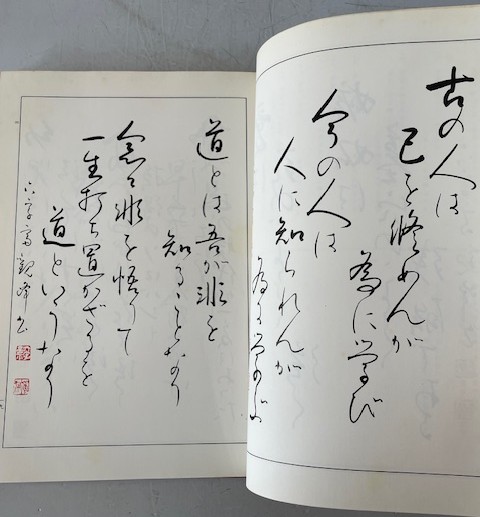 古の人は
己を修めんが
為に学び
今の人は
人に知られんが
為に学ぶ
道とは吾が非を
知ることなり
念々非を悟りて
一生打ち置かざるを
道というなり
観峰書